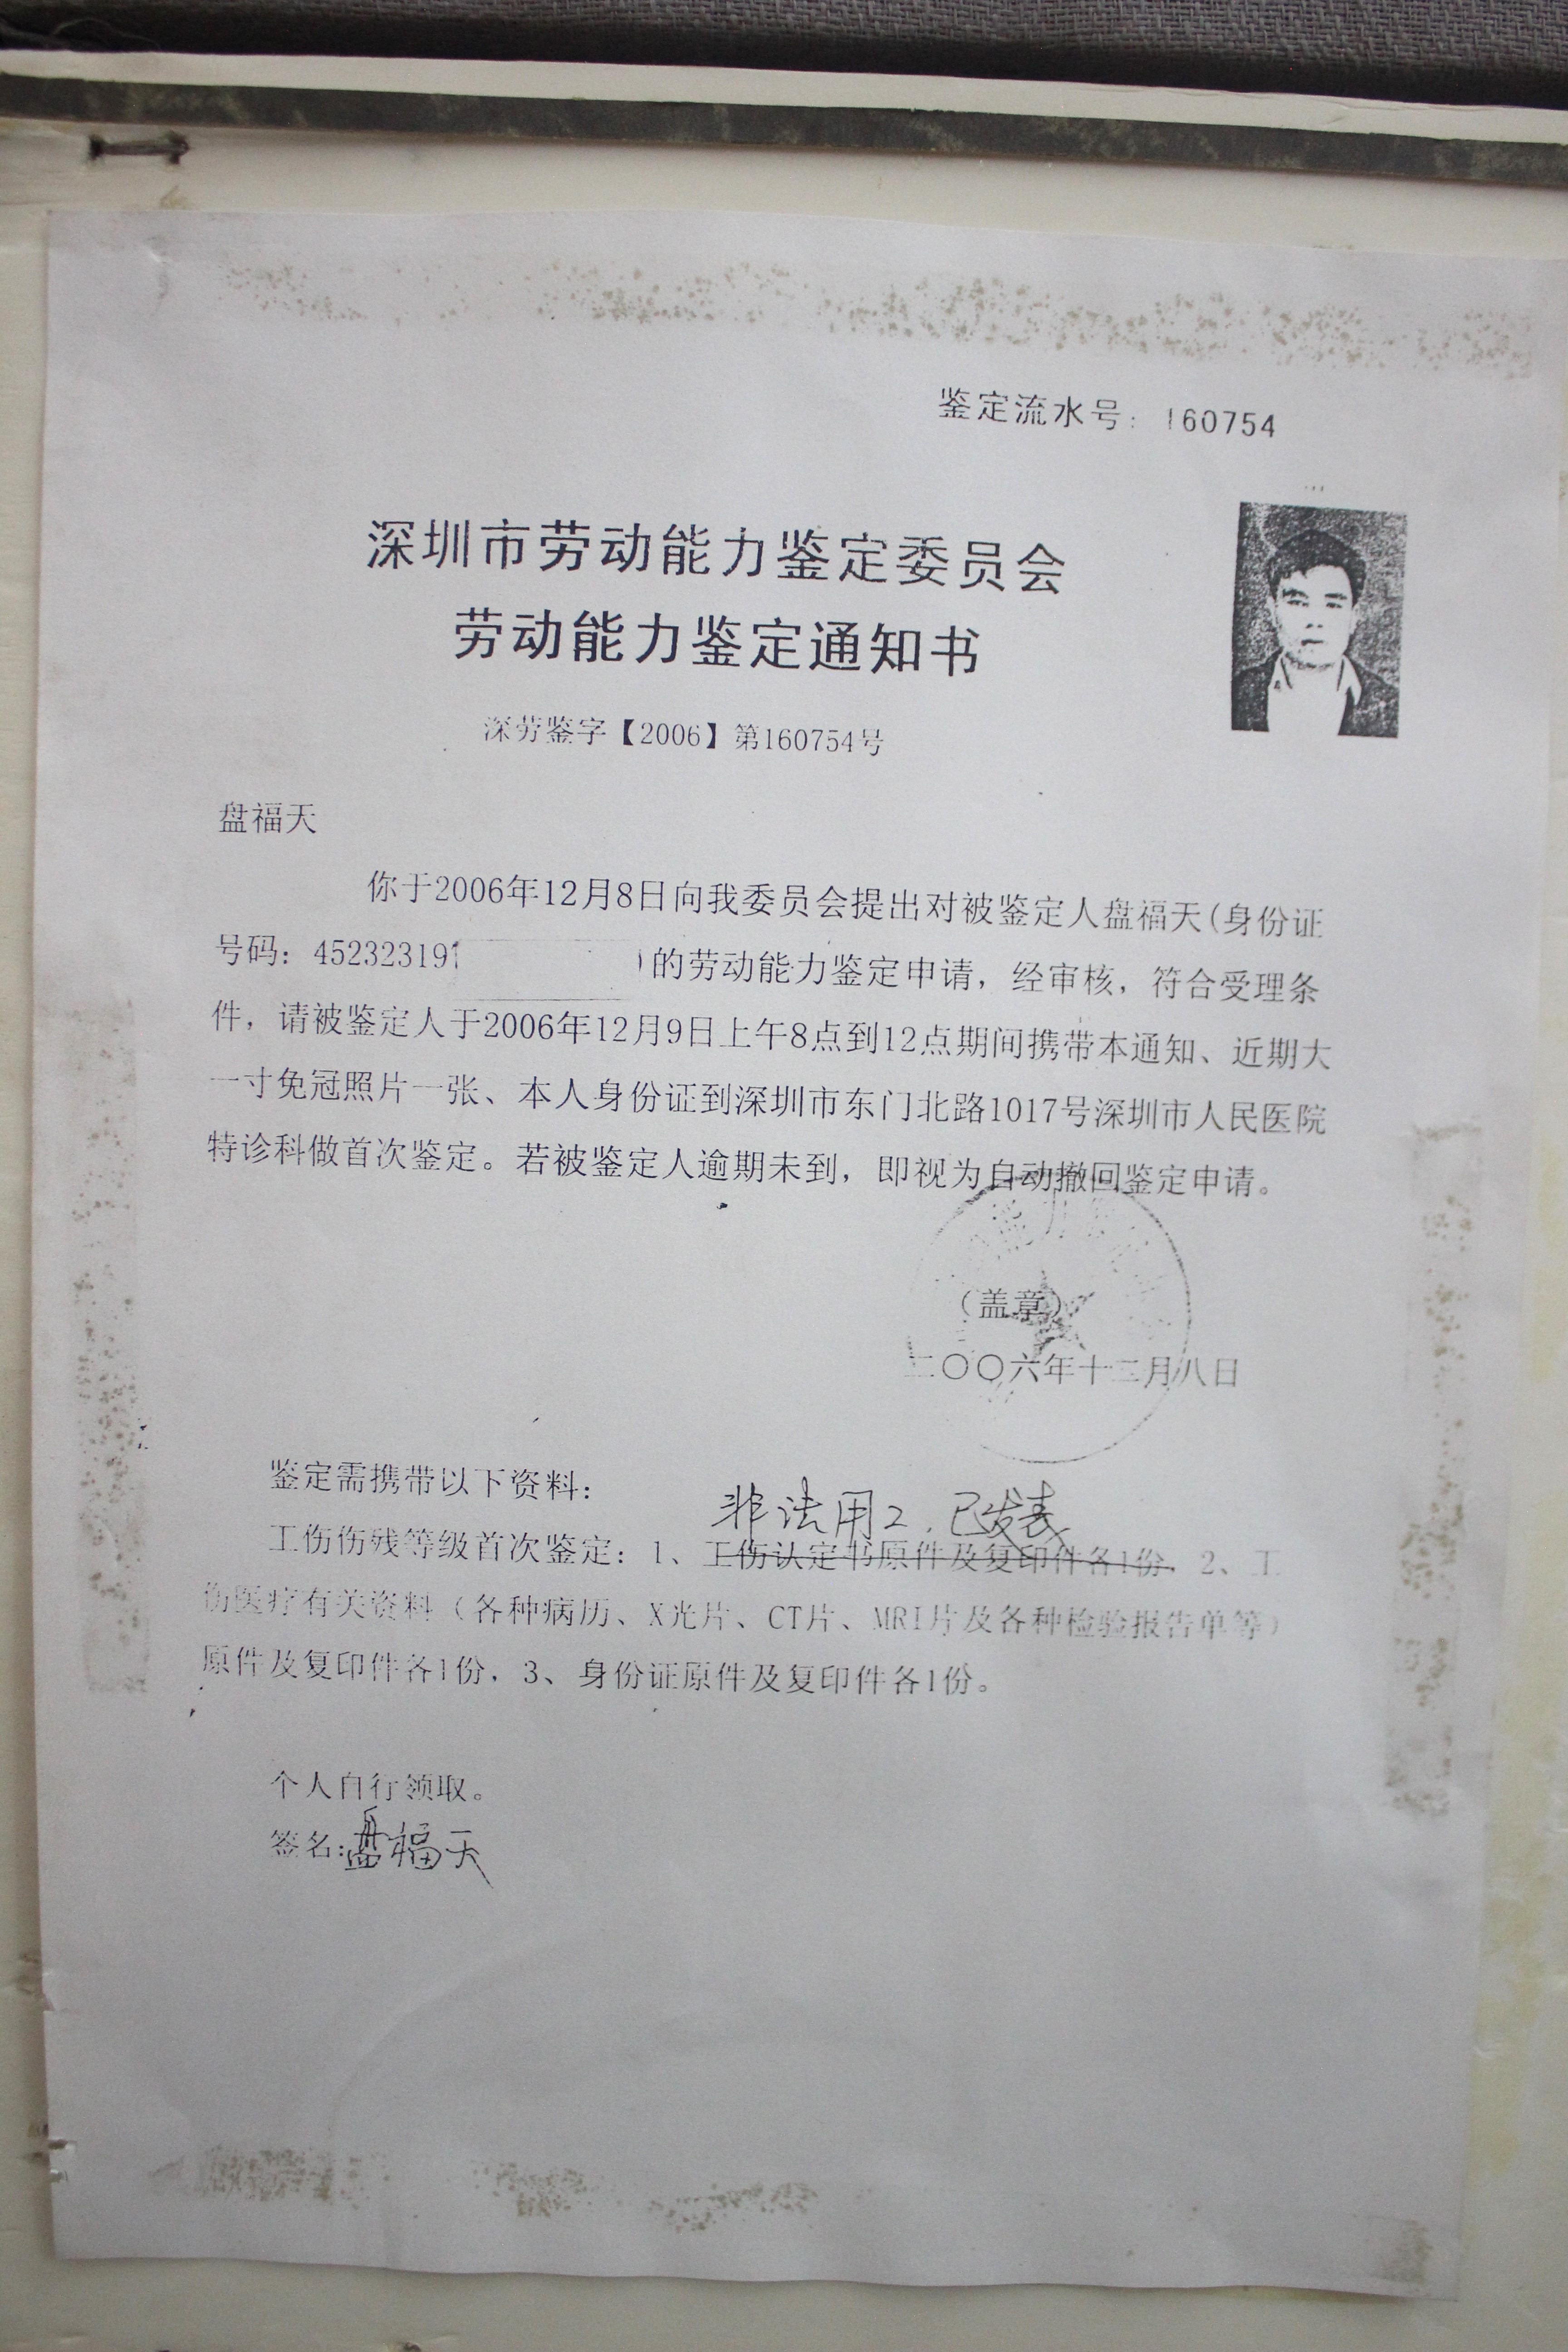 鉴定流水号：160754
深圳市劳动能力鉴定委员会
劳动能力鉴定通知书
深劳鉴字【2006】第160754号
盘福天
你于2006年12月8日向我委员会提出对被鉴定人盘福天(身份证
号码：45232319 )的劳动能力鉴定申请，经审核，符合受理条
件，请被鉴定人于2006年12月9日上午8点到12点期间携带本通知、近期大
一寸免冠照片一张、本人身份证到深圳市东门北路1017号深圳市人民医院
特诊科做首次鉴定。若被鉴定人逾期未到，即视为自动撤回鉴定申请。
（盖章）
二〇〇六年十二月八日
鉴定需携带以下资料：
非法用工，已发表
工伤伤残等级首次鉴定：1、工伤认定书原件及复印件各1份，2、工
伤医疗有关资料（各种病历、X光片、CT片、MRI片及各种检验报告单等）
原件及复印件各1份，3、身份证原件及复印件各1份。
个人自行领取。
签名：盘福天